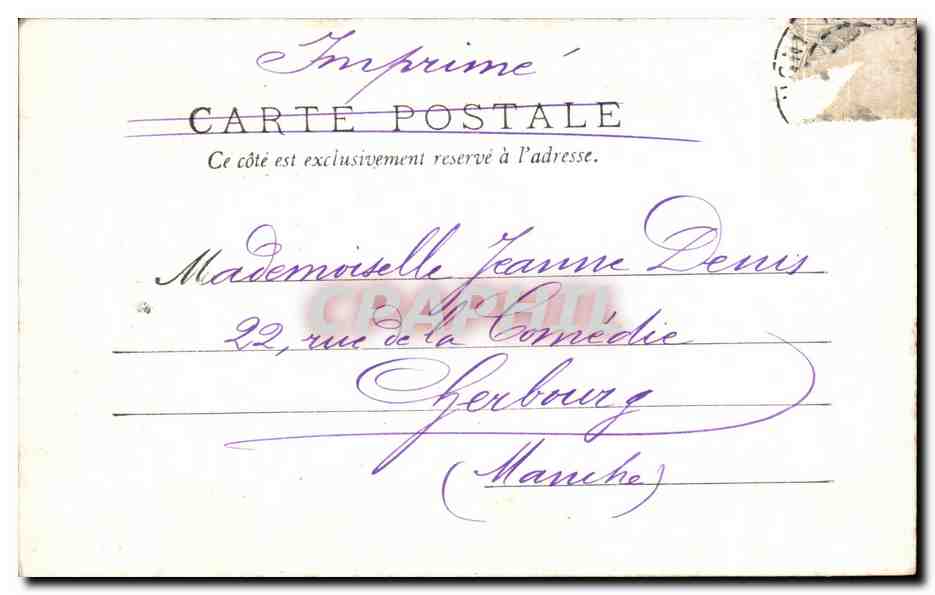 Imprimé
CARTE POSTALE
Ce côté est exclusivement reservé à l'adresse.
Mademoiselle Jeanne Denis
CPAPHIL
22, rue de la Comédie
Cherbourg
(Manche)